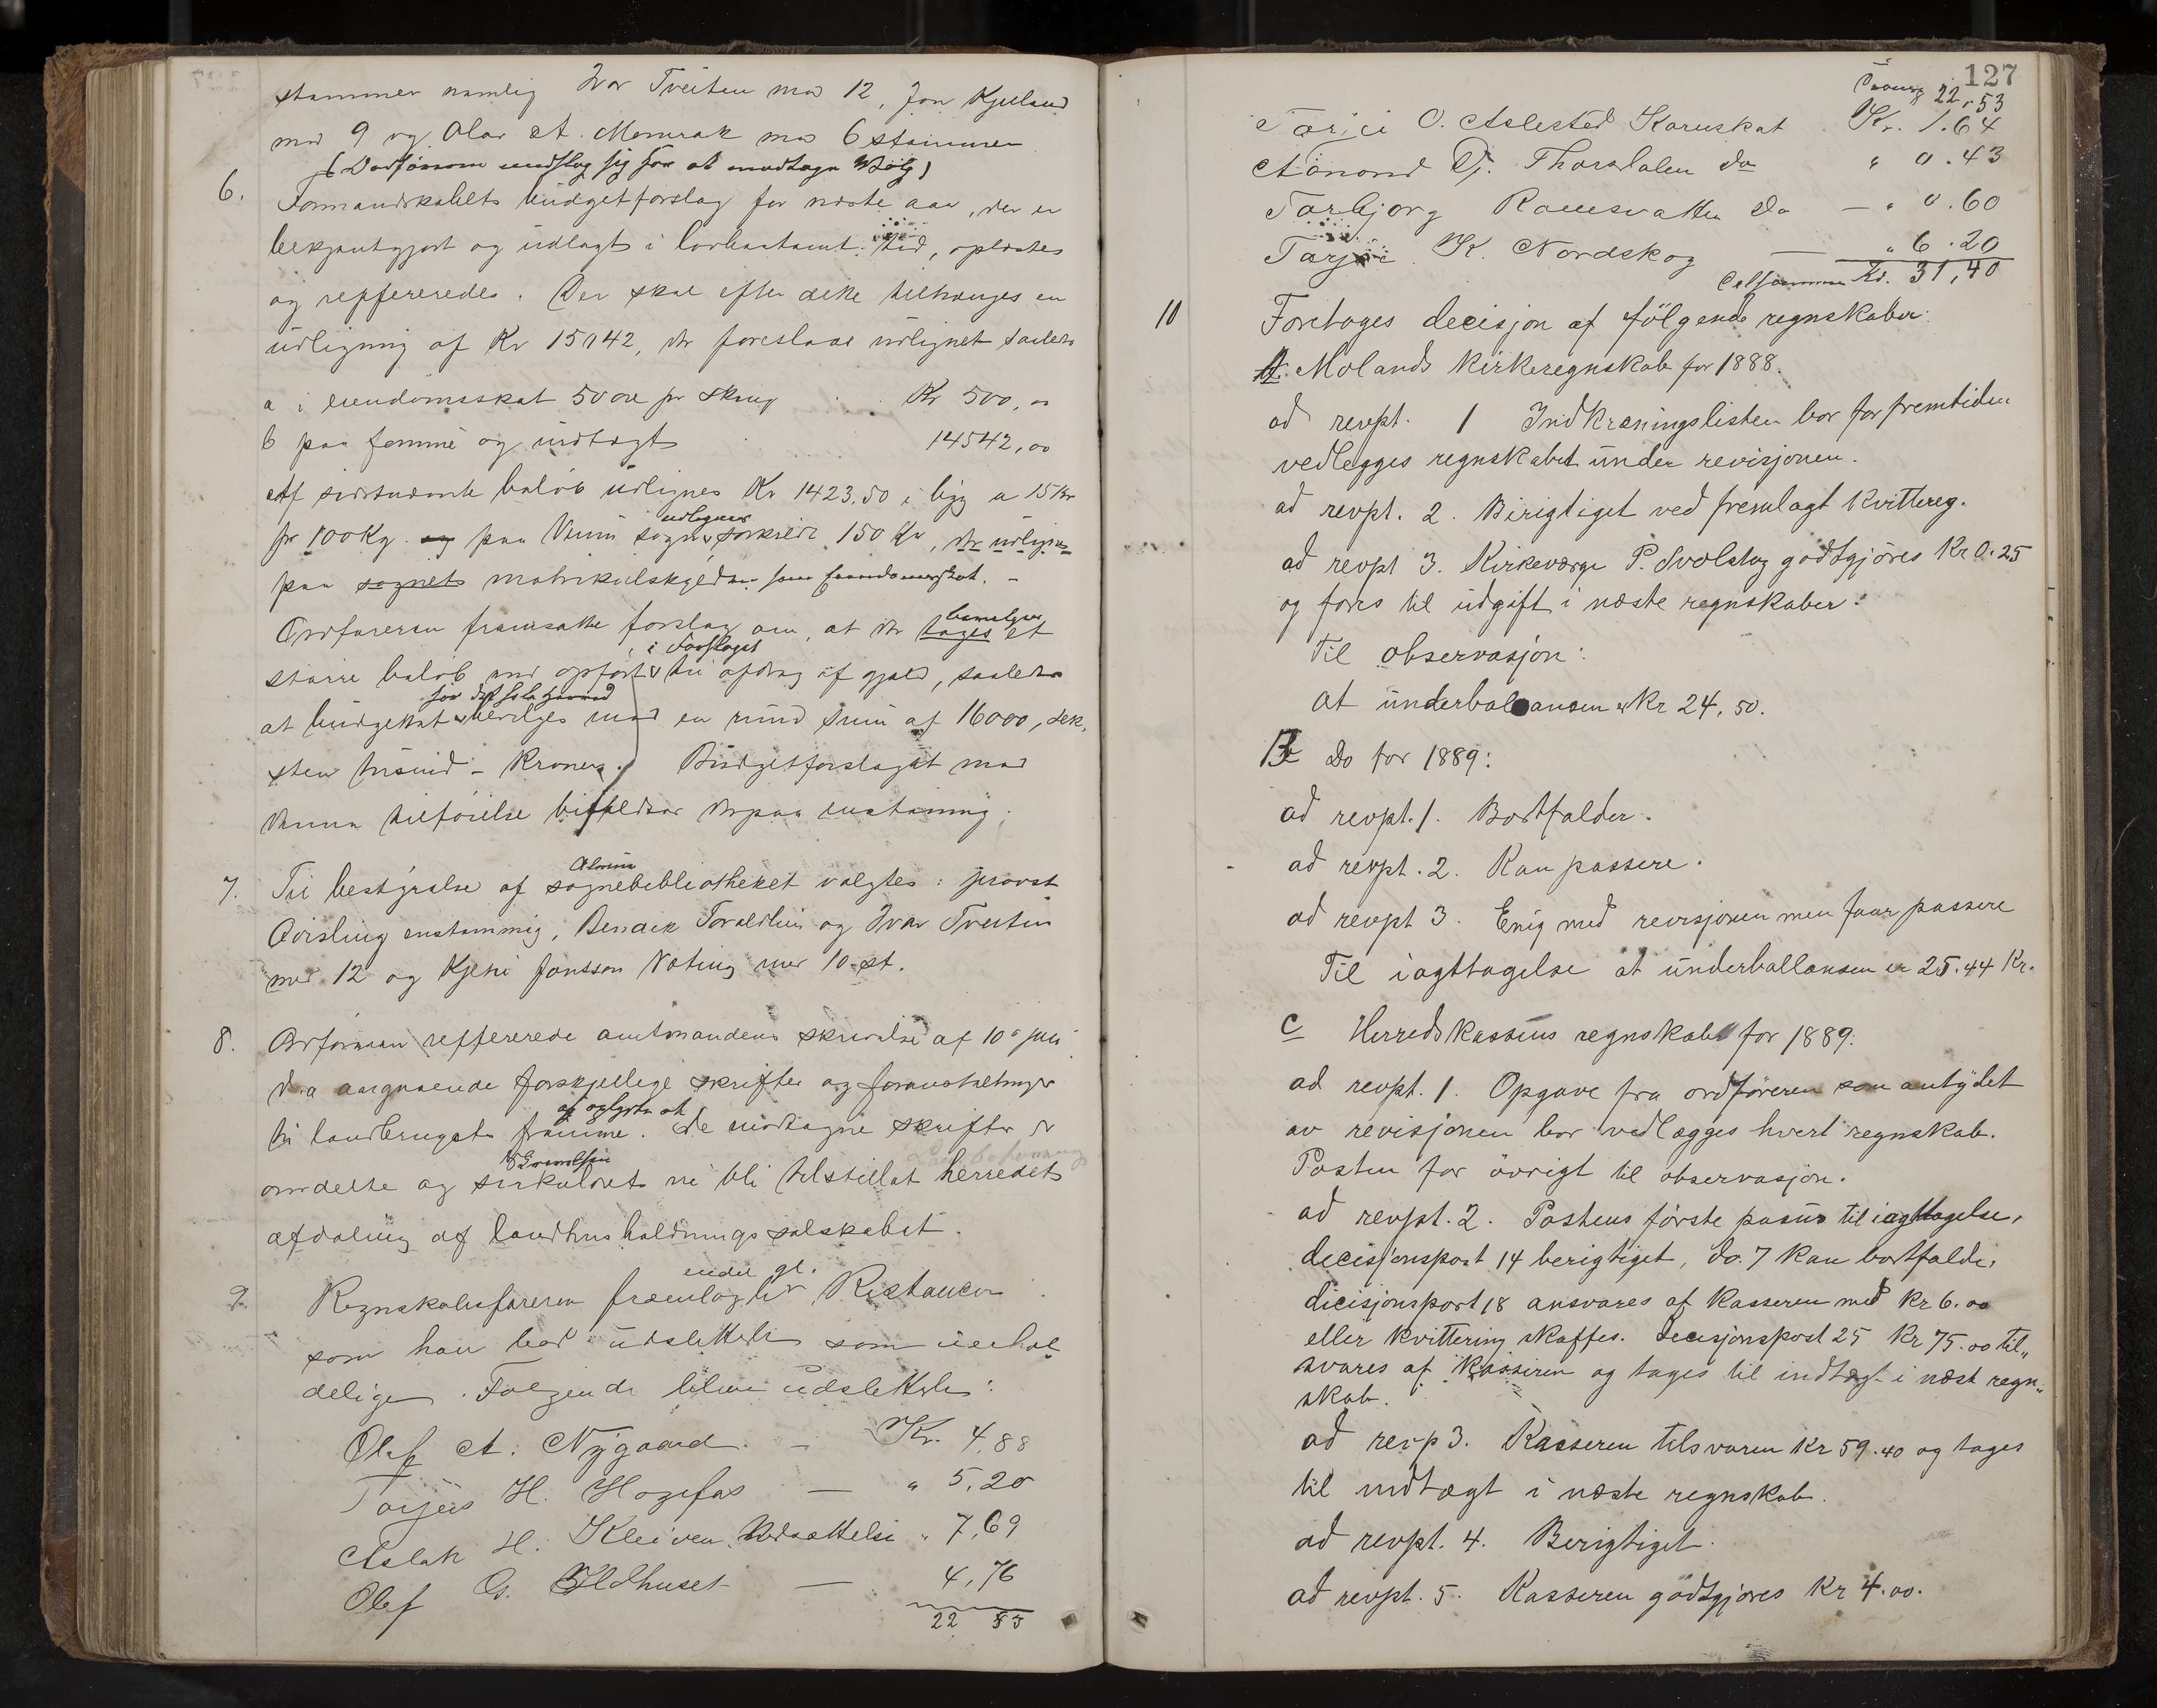 stemmer namlig Ivar Tveiten med 12, Jon Kjeland
med 9 og Olav A. Momrak med 6 stemmer
6. Formandskabets budgetforslag for næste aar, der er
bekjentgjort og udlagt i lovbestemt tid, oplæstes
og reffereredes. Der skal efter dette tiltrenges en
udligning af Kr 15042, der foreslaaes udlignet saaledes
a i eiendomsskat 50 øre pr skmy Kr 500,00
b paa formue og indtægt 14542,00
Af sidstnævnte beløb udlignes Kr 1423.50 i lægg a 15 kr
pr 100 Kg. og paa Vinje sogn udlignes 150 Kr, der udlignes
paa sognets matrikulskyld som eiendomsskat. -
Ordføreren fremsatte forslag om, at der tages bevilges et
større beløb end opført i Forslaget til afdrag af gjæld, saaledes
at budgettet bevilges med en rund sum af 16000, sek,
sten tusind - kroner. Budgetforslaget med
denne tilføielse bifaldtes derpaa enstemmig.
7. Til bestyrelse af sognebibliotheket valgtes: provst
Qvisling enstemmig, Bendik Torvetlien og Ivar Tveiten
med 12 og Kjetil Jonsson Nøting med 10 st.
8. Ordføreren reffererede amtmandens skrivelse af 10de juli
d.a angaaende forskjellige skrifter og foranstaltninger
til landbrugets fremme. De modtagne skrifter er
omdelte og sirkulæret vil bli tilstillet herredets
afdeling af landhusholdningsselskabet.
9. Regnskabsføreren fremlagde endel gl. Restancer
som han bad udslettede som uerhol
delige. Følgende bleve udslettede:
Olaf A. Nygaard - Kr. 4,88
Torjus H. Hogefos — " 5,20
Aslak H. Kleiven Udsættelse " 7,69
Olaf G. Ildhuset — 4,76
22 53
127
22,53
Tarjei O. Aslested Kornskat Kr. 1.64
Aanond Tj. Thorsdalen do " 0.43
Torbjorg Rauesvatten do — " 0.60
Tarjei K. Nordskog — " 6.20
Tilsammen Kr. 31,40
10 Foretoges decisjon af følgende regnskaber:
A. Molands kirkeregnskab for 1888.
ad revpt. 1 Indkrævningslisten bør for fremtiden
vedlegges regnskabet under revisjonen.
ad revpt. 2. Birigtiget ved fremlagt kvittereg.
ad revpt 3. Kirkeværge P. Svalestog godtgjöres Kr 0.25
og føres til udgift i næste regnskaber.
Til observasjon:
at underballansen er Kr 24,50.
B Do for 1889:
ad revpt. 1. Bortfalder.
ad revpt. 2. Kan passere.
ad revpt 3. Enig med revisjonen men faar passere
Til iagttagelse at underballansen er 25.44 Kr.
C Herredskassens regnskab for 1889:
ad revpt. 1. Opgave fra ordföreren som antydet
av revisjonen bør vedlægges hvert regnskab.
Posten for övrigt til observasjon.
ad revpt. 2. Postens förste passus til iagttagelse,
decisjonspost 14 berigtiget, do. 7 kan bortfalde,
dicisjonspost 18 ansvares af kasseren med kr 6.00
eller kvittering skaffes. Decisjonspost 25 Kr 75.00 til„
svares af kasseren og tages til indtægt i næst regn„
skab.
ad revp 3. Kasseren tilsvarer Kr 59.40 og tages
til indtægt i næste regnskab.
ad revpt. 4. Berigtiget.
ad revpt. 5. Kasseren godtgjøres Kr 4.00.